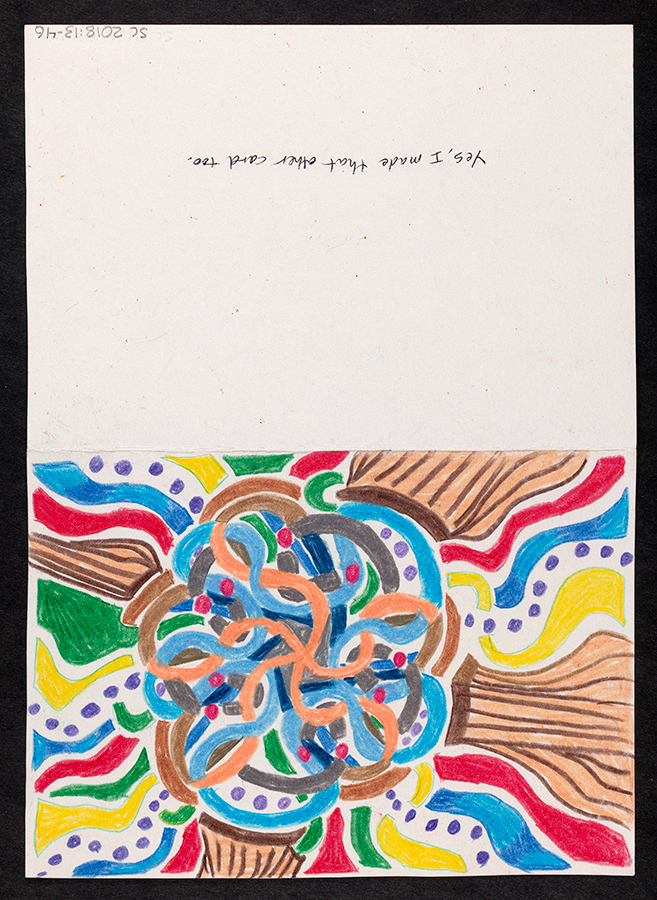 Yes, I made that other card too.
SC 2018:13-46